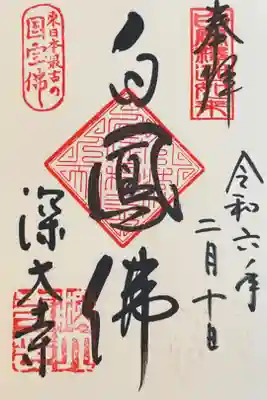 奉拝
令和六年
二月十日
白鳳佛
深大寺
東日本最古の
国宝佛